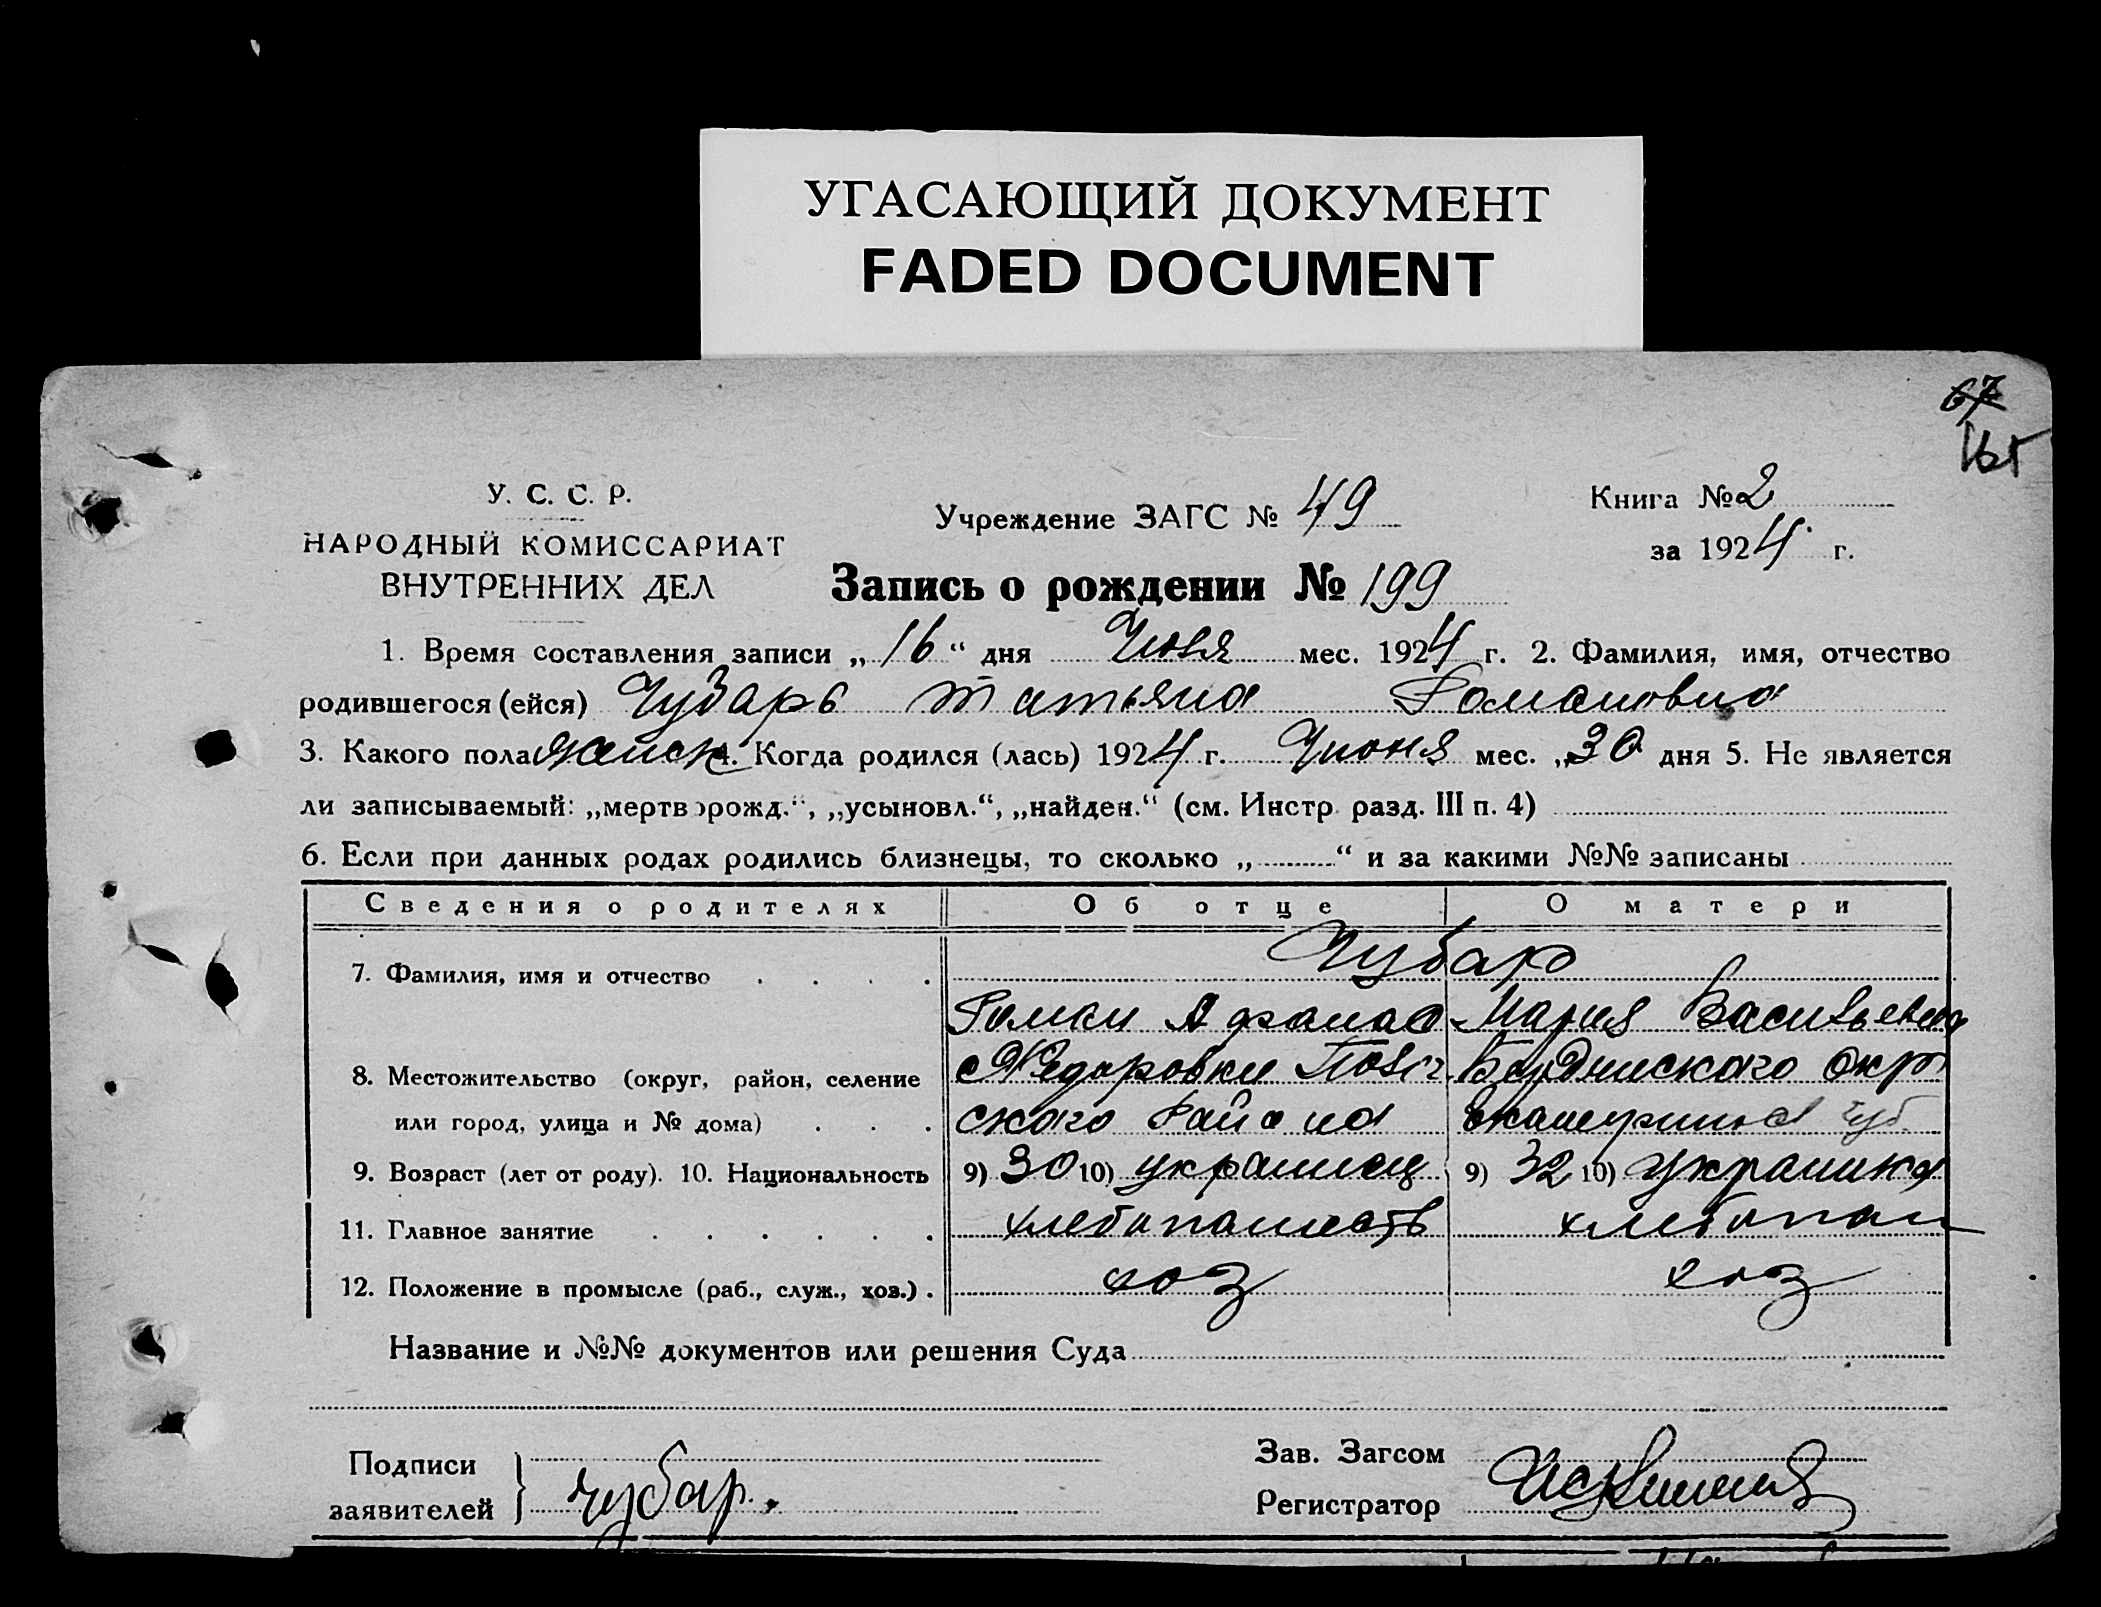 УГАСАЮЩИЙ ДОКУМЕНТ
FADED DOCUMENT
67
165
У. С. С. Р.
НАРОДНЫЙ КОМИССАРИАТ
ВНУТРЕННИХ ДЕЛ
Учреждение ЗАГС № 49
Книга № 2
за 1924 г.
Запись о рождении № 199
1. Время составления записи „16“ дня Июля мес. 1924 г. 2. Фамилия, имя, отчество
родившегося (ейся) Чубарь Татьяна Романовна
3. Какого пола женск 4. Когда родился (лась) 1924 г. Июня мес. „30 дня 5. Не является
ли записываемый: „мертворожд.“, „усыновл.“, „найден.“ (см. Инстр. разд. III п. 4)
6. Если при данных родах родились близнецы, то сколько „ “ и за какими №№ записаны
Сведения о родителях Об отце О матери
7. Фамилия, имя и отчество Чубар
Роман Афанас Мария Васильевна
8. Местожительство (округ, район, селение
или город, улица и № дома)
с Федоровки Бердянского окр
ского Района Екатеринос губ.
9. Возраст (лет от роду). 10. Национальность 9) 30 10) украинец 9) 32 10) украинка
11. Главное занятие хлебопашеств хлебопаш
12. Положение в промысле (раб., служ., хоз.) хоз хоз
Название и №№ документов или решения Суда
Подписи
заявителей } чубар.
Зав. Загсом
Регистратор